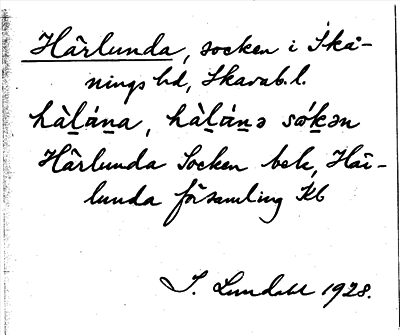 Härlunda, socken i Skå-
nings hd, Skarab.l.
hàḻáṉa, hàḻáṉə sóḵən
Härlunda Socken bek, Här-
lunda församling Kb
I. Lundahl 1928.